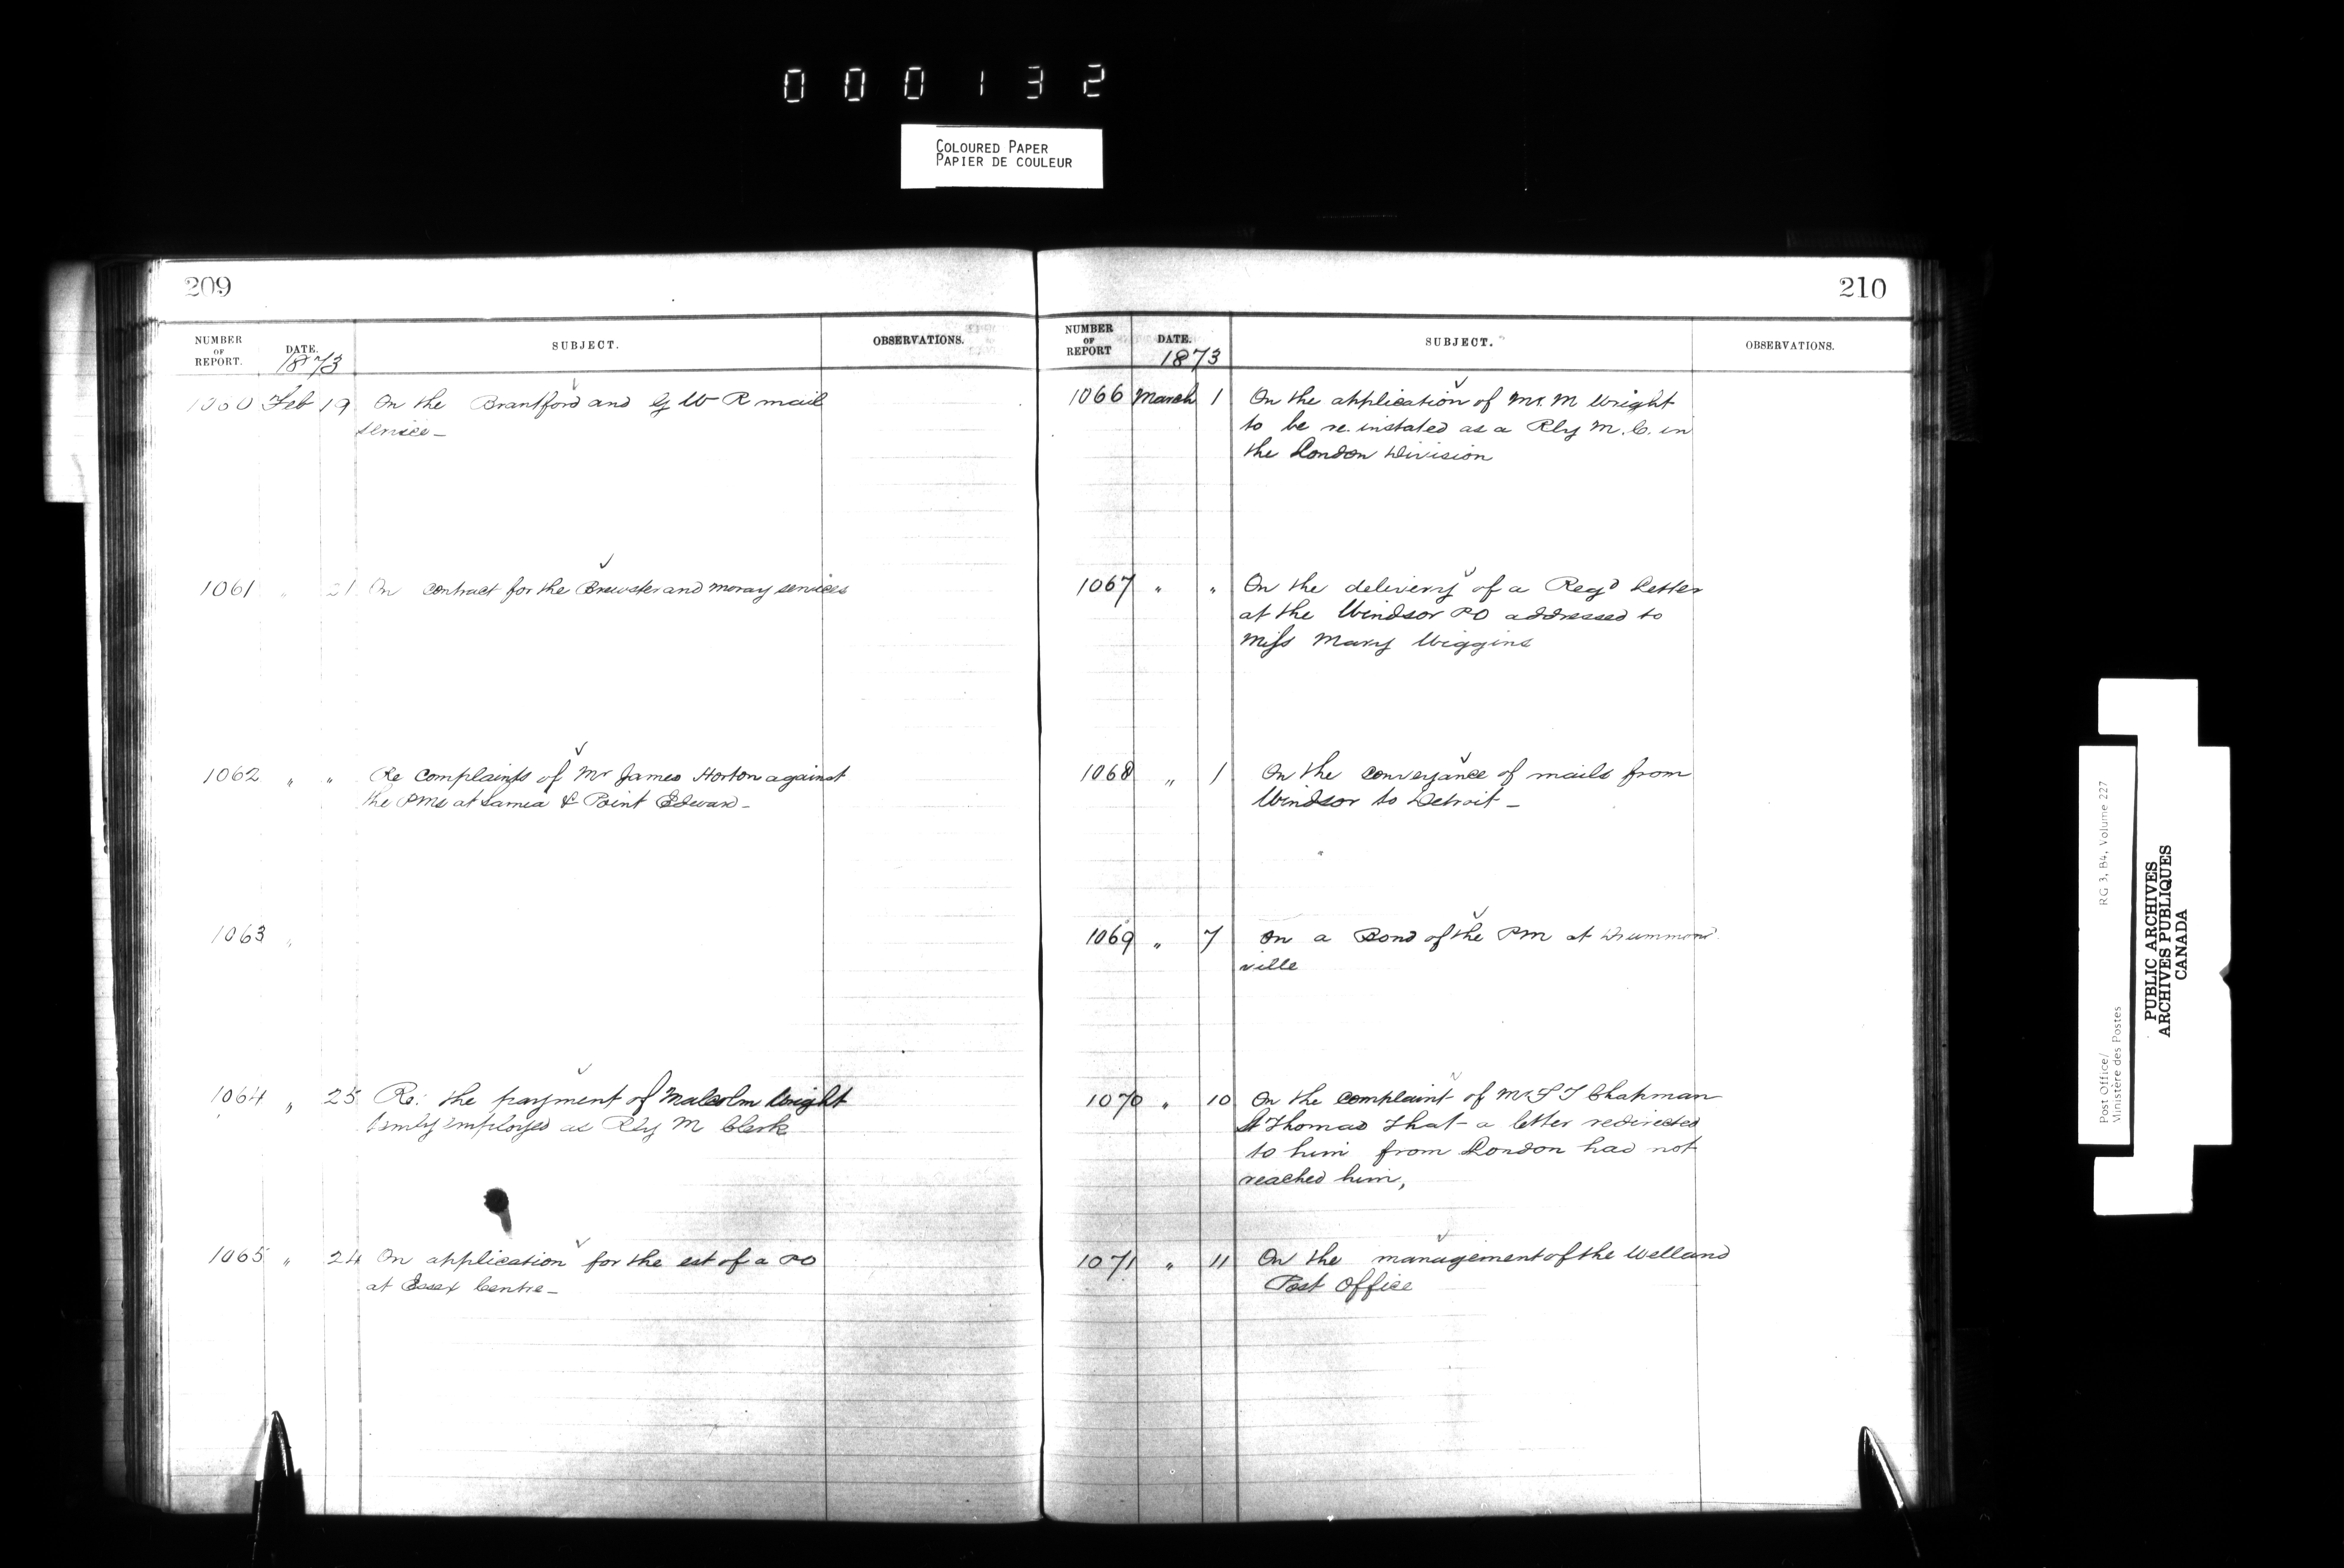 000132
COLOURED PAPER
PAPIER DE COULEUR
209
NUMBER OF REPORT. DATE. SUBJECT. OBSERVATIONS.
1873
1060 Feb 19 On the Brantford and G W R mail
service_
1061 " 21 On contract for the Brewster and Moray services
1062 " " Re complaints of Mr James Horton against
the PMs at Sarnia & Point Edward_
1063 "
1064 " 25 Re: the payment of Malcolm Wright
employed as Rly M Clerk
1065 " 24 On application for the est of a PO
at Essex Centre_
210
NUMBER OF REPORT DATE. SUBJECT. OBSERVATIONS.
1873
1066 March 1 On the application of Mr. M Wright
to be re.instated as a Rly M.C. in
the London Division
1067 " " On the delivery of a Regd Letter
at the Windsor PO addressed to
Miss Mary Wiggins
1068 " 1 On the conveyance of mails from
Windsor to Detroit_
1069 " 7 On a Bond of the PM at Drummond
ville
1070 " 10 On the complaint of Mr Chapman
St Thomas that a letter redirected
to him from London had not
reached him,
1071 " 11 On the management of the Welland
Post Office
Post Office/ RG 3, B4, Volume 227
Ministère des Postes
PUBLIC ARCHIVES
ARCHIVES PUBLIQUES
CANADA